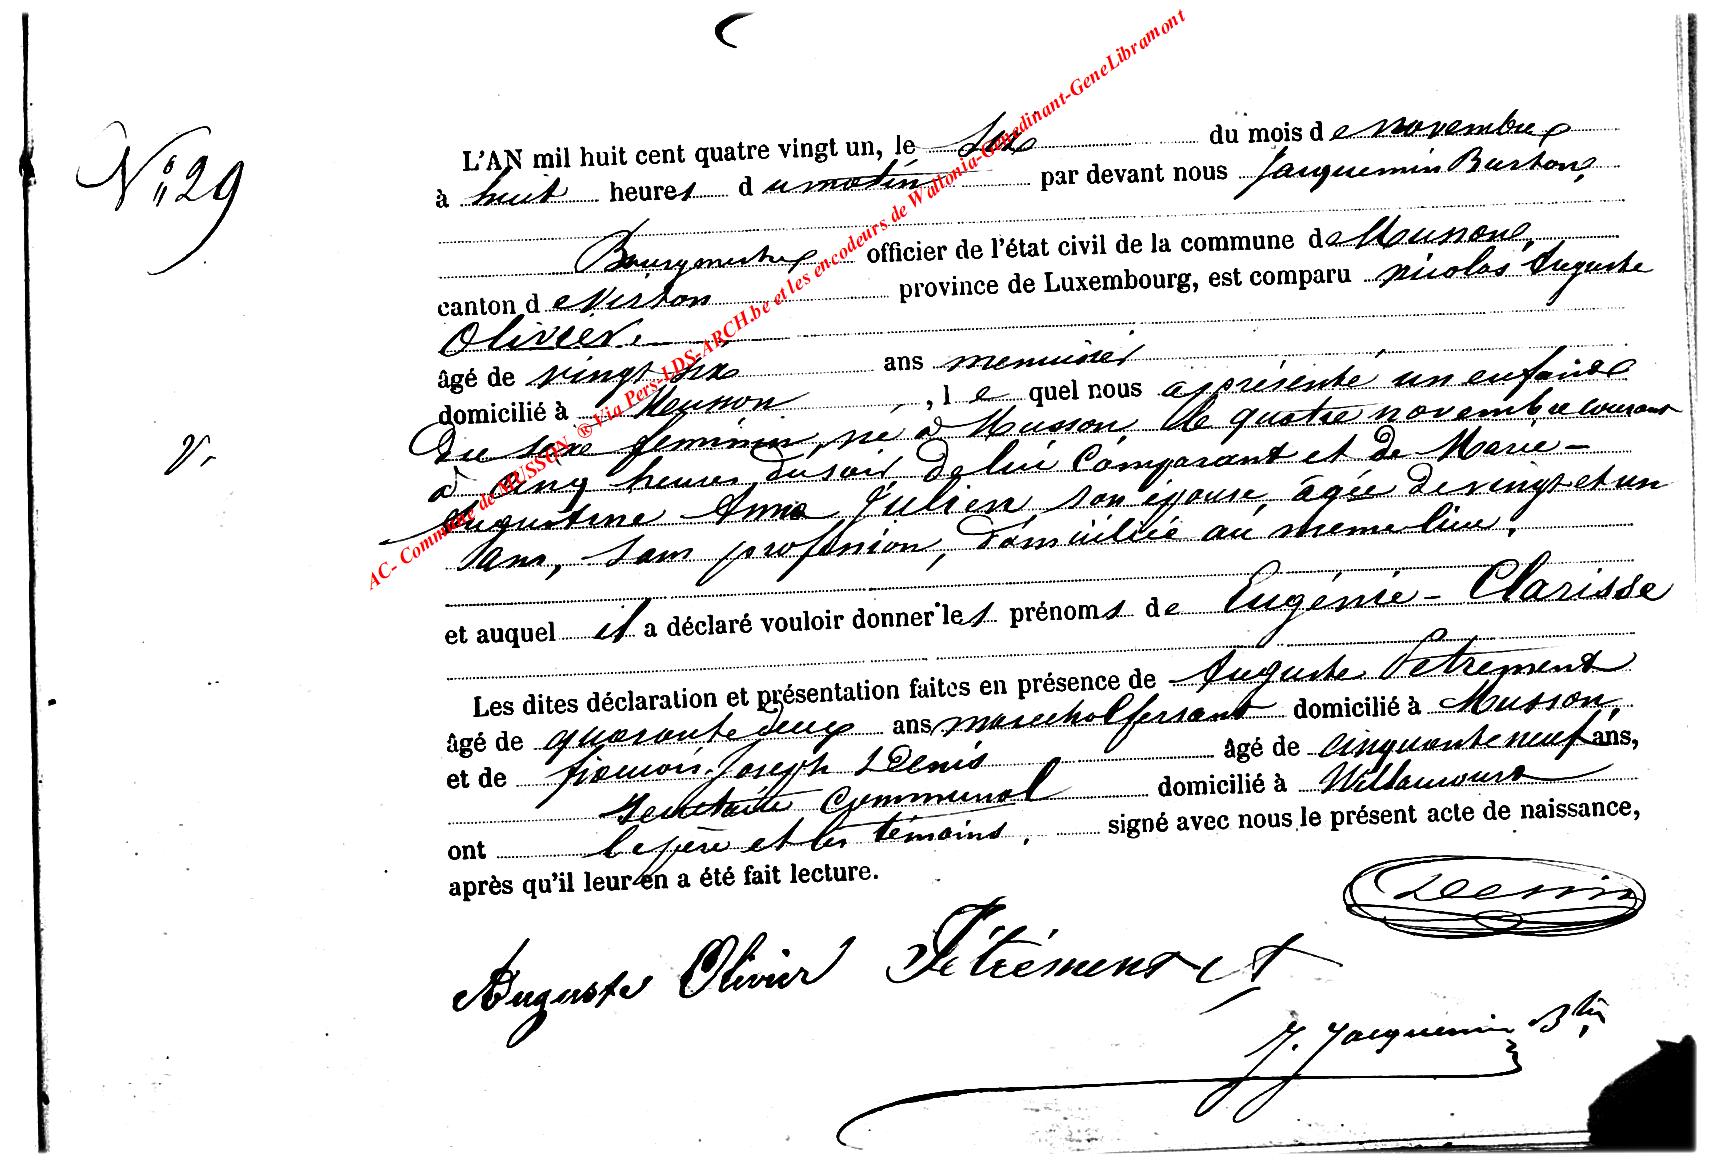 N° 29
L'AN mil huit cent quatre vingt un, le six du mois de novembre
à huit heures du matin par devant nous Jacquemin Burton,
Bourgmestre officier de l'état civil de la commune de Musson,
canton de Virton province de Luxembourg, est comparu Nicolas Auguste
Olivier,
âgé de vingt six ans menuisier
domicilié à Musson, le quel nous a présenté un enfant
du sexe féminin, né à Musson, le quatre novembre courant
à cinq heures du soir, de lui comparant et de Marie-
Augustine Anna Julien son épouse, âgée de vingt et un
ans, sans profession, domiciliée au même lieu,
et auquel il a déclaré vouloir donner les prénoms de Eugénie-Clarisse
Les dites déclaration et présentation faites en présence de Auguste Petrement
âgé de quarante deux ans marechal ferrant domicilié à Musson,
et de françois Joseph Denis âgé de cinquante neuf ans,
Secretaire Communal domicilié à Willancourt
ont le père et les témoins, signé avec nous le présent acte de naissance,
après qu'il leur en a été fait lecture.
Denis
Auguste Olivier Pétrément A
J. Jacquemin Btn
V.
AC- Commune de MUSSON ® Via Pers-LDS-ARCH.be et les encodeurs de Wallonia-Genedinant-GeneLibramont